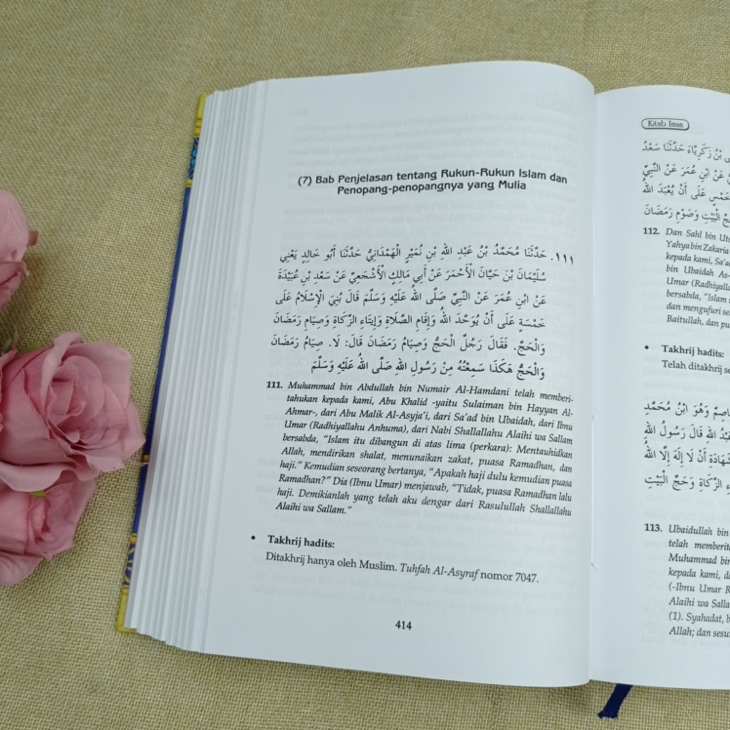 (7) Bab Penjelasan tentang Rukun-Rukun Islam dan
Penopang-penopangnya yang Mulia
١١١. حَدَّثَنَا مُحَمَّدُ بْنُ عَبْدِ اللهِ بْنِ نُمَيْرٍ الْهَمْدَانِيُّ حَدَّثَنَا أَبُو خَالِدٍ يَعْنِي
سُلَيْمَانَ بْنَ حَيَّانَ الْأَحْمَرَ عَنْ أَبِي مَالِكٍ الْأَشْجَعِيِّ عَنْ سَعْدِ بْنِ عُبَيْدَةَ
عَنْ ابْنِ عُمَرَ عَنْ النَّبِيِّ صَلَّى اللهُ عَلَيْهِ وَسَلَّمَ قَالَ بُنِيَ الْإِسْلَامُ عَلَى
خَمْسَةٍ عَلَى أَنْ يُوَحَّدَ اللهُ وَإِقَامِ الصَّلَاةِ وَإِيتَاءِ الزَّكَاةِ وَصِيَامِ رَمَضَانَ
وَالْحَجِّ. فَقَالَ رَجُلٌ الْحَجُّ وَصِيَامُ رَمَضَانَ قَالَ: لَا. صِيَامُ رَمَضَانَ
وَالْحَجُّ هَكَذَا سَمِعْتُهُ مِنْ رَسُولِ اللهِ صَلَّى اللهُ عَلَيْهِ وَسَلَّمَ
111. Muhammad bin Abdullah bin Numair Al-Hamdani telah memberi-
tahukan kepada kami, Abu Khalid -yaitu Sulaiman bin Hayyan Al-
Ahmar-, dari Abu Malik Al-Asyja'i, dari Sa'ad bin Ubaidah, dari Ibnu
Umar (Radhiyallahu Anhuma), dari Nabi Shallallahu Alaihi wa Sallam
bersabda, "Islam itu dibangun di atas lima (perkara): Mentauhidkan
Allah, mendirikan shalat, menunaikan zakat, puasa Ramadhan, dan
haji." Kemudian seseorang bertanya, "Apakah haji dulu kemudian puasa
Ramadhan?" Dia (Ibnu Umar) menjawab, "Tidak, puasa Ramadhan lalu
haji. Demikianlah yang telah aku dengar dari Rasulullah Shallallahu
Alaihi wa Sallam."
• Takhrij hadits:
Ditakhrij hanya oleh Muslim. Tuhfah Al-Asyraf nomor 7047.
414
Kitab Iman
بْنُ زَكَرِيَّاءَ حَدَّثَنَا سَعْدُ
عَنْ ابْنِ عُمَرَ عَنْ النَّبِيِّ
خَمْسٍ عَلَى أَنْ يُعْبَدَ اللهُ
الْبَيْتِ وَصَوْمِ رَمَضَانَ
112. Dan Sahl bin
Yahya bin Zakaria
kepada kami, Sa'a
bin Ubaidah As-
Umar (Radhiyalla
bersabda, "Islam
dan mengufuri se
Baitullah, dan pu
• Takhrij hadits:
Telah ditakhrij
عَاصِمٌ وَهُوَ ابْنُ مُحَمَّدِ
عَبْدُ اللهِ قَالَ رَسُولُ اللهِ
شَهَادَةِ أَنْ لَا إِلَهَ إِلَّا اللهُ
الزَّكَاةِ وَحَجِّ الْبَيْتِ
113. Ubaidullah bin
telah memberit
Muhammad bin
kepada kami, d
(-Ibnu Umar R
Alaihi wa Salla
(1). Syahadat,
Allah; dan sesu